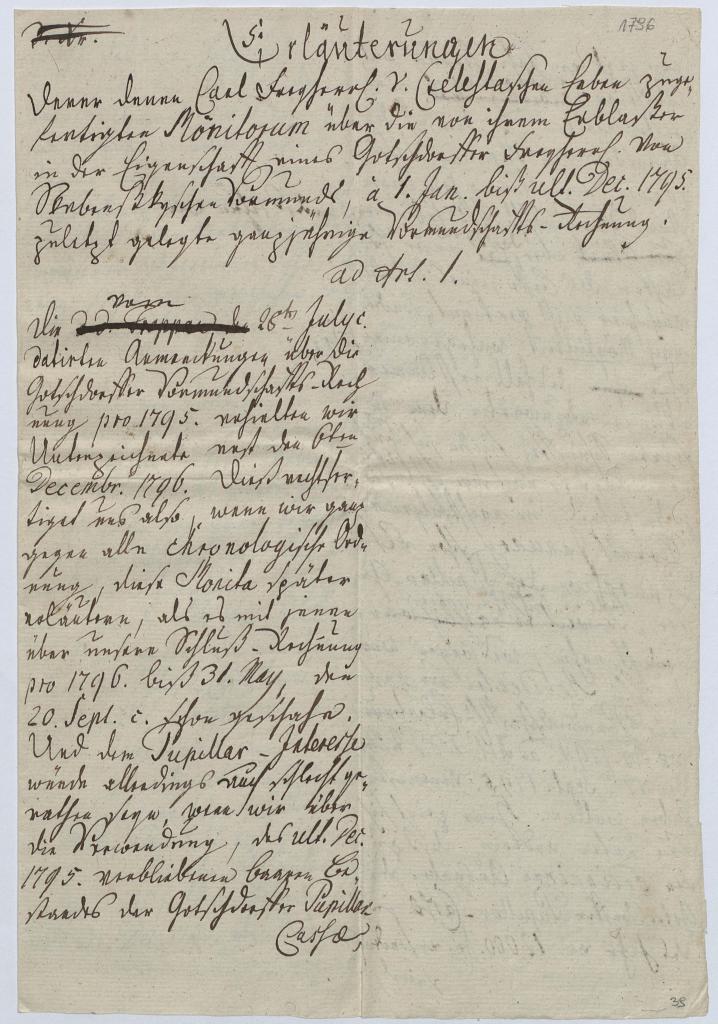 1796
5.
Erläuterungen
Derer denen Carl Freyherrl. v. Celestaschen Erben zuge-
fertigten Monitorum über die von ihrem Erblasser
in der Eigenschaft eines Gotschdorffer Freyherrl. von
Vormunds, à 1. Jan. biß ult. Dec. 1795.
zuletzt gelegte ganzjährige Vormundschafts-Rechnung.
ad Art. 1.
vom
Die 28ten July c.
datirten Anmerkungen über die
Gotschdorffer Vormundschafts-Rech
nung pro 1795. erhielten wir
Unterzeichnete erst den 6ten
Decembr. 1796. Dieß rechtfer-
tiget uns also, wenn wir ganz
gegen alle chronologische Ord-
nung, diese Monita später
erläutern, als es mit jenen
über unsere Schluß-Rechnung
pro 1796. biß 31. May, den
20. Sept. c. schon geschahe.
Und dem Pupillar-Interesse
würde allerdings auch schlecht ge-
rathen seyn, wenn wir über
die Verwendung, des ult. Dec.
1795. verbliebenen baaren Be-
standes der Gotschdorffer Pupillar
Cassæ,
38